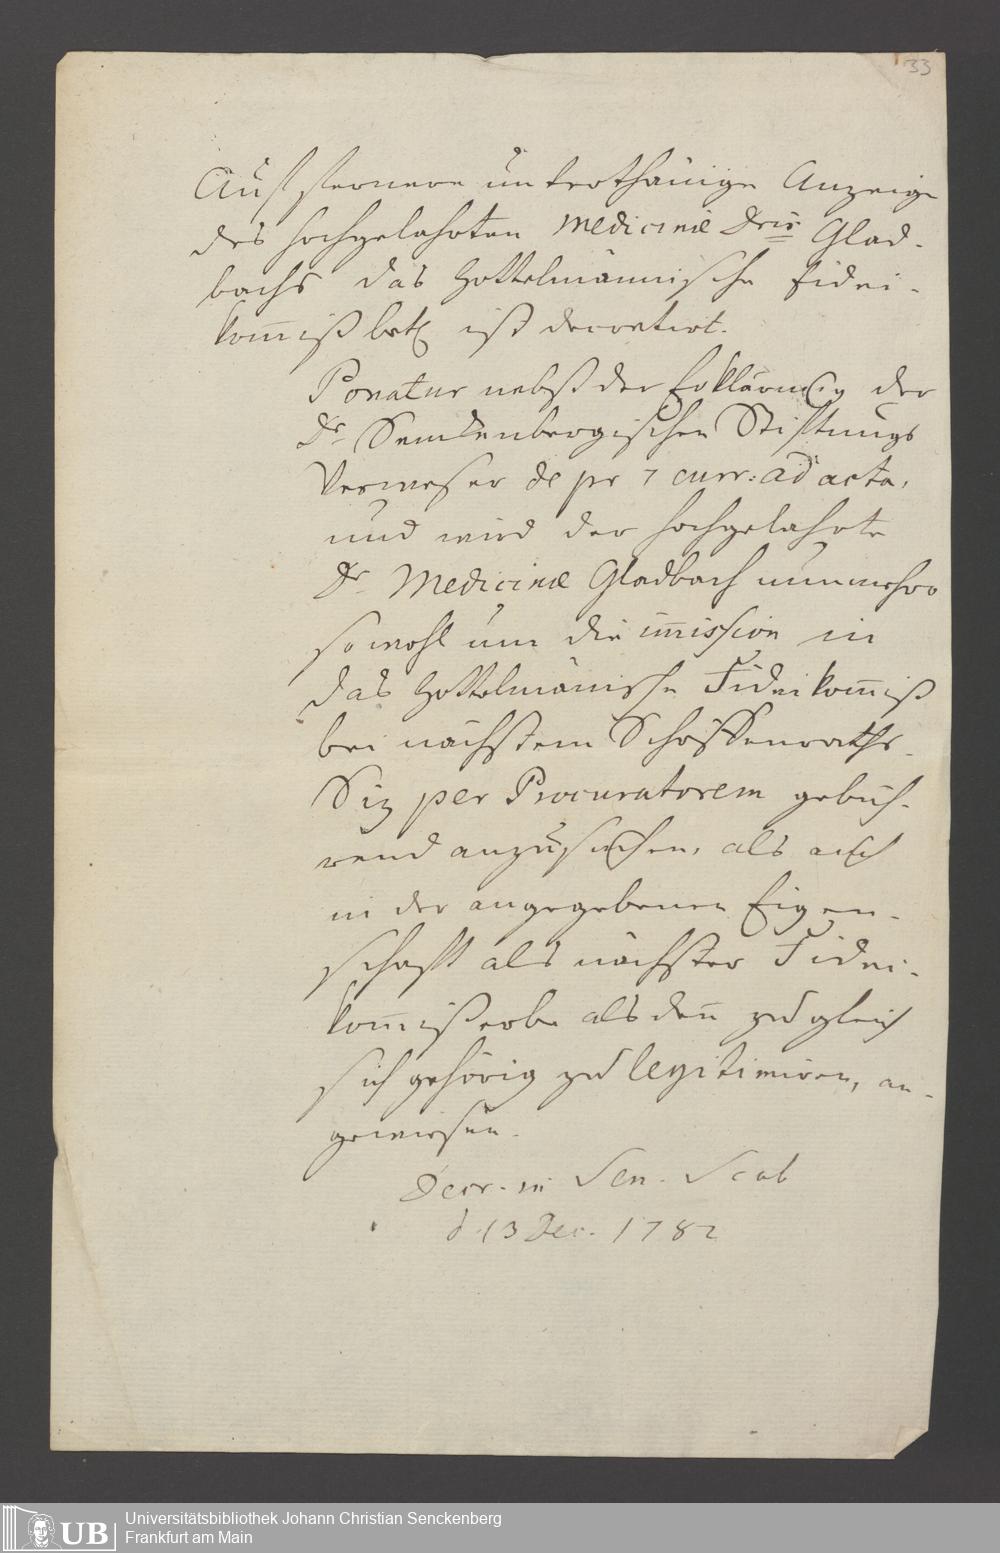 33
Auf fernere unterthänige Anzeige
des hochgelahrten Medicinæ Dris Glad-
bachs das Hottelmännische Fidei-
kom̄iß betr ist decretirt.
Ponatur nebst der Erklärung der
Dr. Senckenbergischen Stiftungs
Verweser de pr 7 curr: ad acta,
und wird der hochgelahrte
Dr. Medicinæ Gladbach nunmehro
sowohl um die im̄ission in
das Hottelmänische Fideikom̄iß
bei nächstem Schöffenraths-
Siz per Procuratorem gebüh-
rend anzusuchen, als auch
in der angegebenen Eigen-
schaft als nächster Fidei-
kom̄ißerbe alsden̄ zugleich
sich gehörig zu legitimiren, an-
gewiesen.
Decr. in Sen. Scab
d. 13 Dec. 1782
UB Universitätsbibliothek Johann Christian Senckenberg
Frankfurt am Main